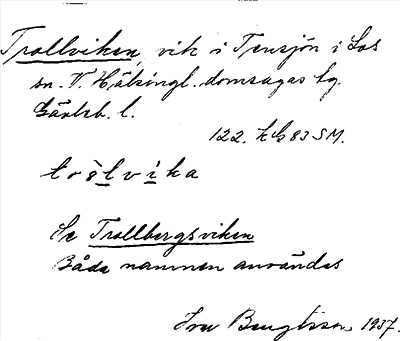 Trollviken, vik i Tensjön i Los
sn. V. Hälsingl. domsagas tg.
Gävleb. l.
122. kG 83 SM.
trolvika
Se Trollbergsviken
Båda namnen användes
Bengtsson 1937.